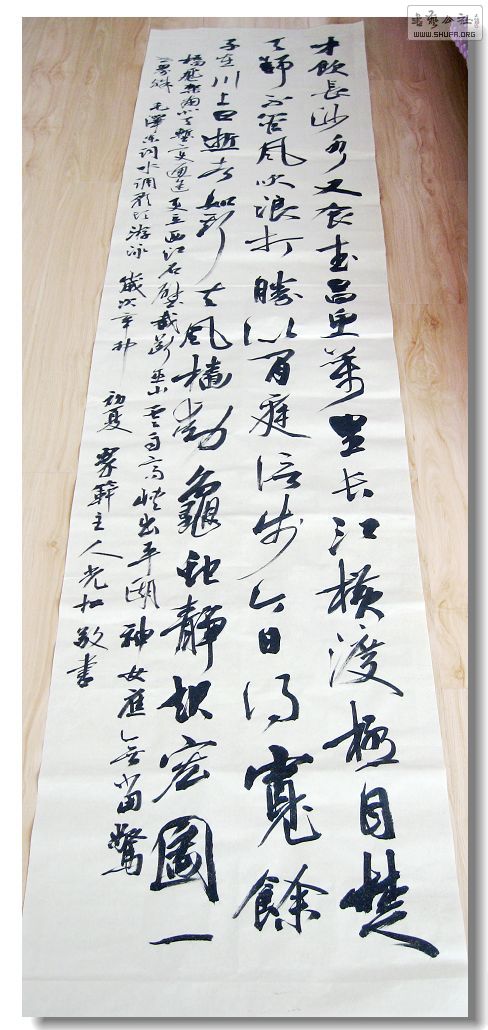 書藝公社
WWW.SHUFA.ORG
才飲長沙水又食武昌魚萬里长江橫渡極目楚
天舒不管風吹浪打勝似閒庭信步今日得寬餘
子在川上曰逝者如斯夫風檣動龜蛇靜起宏圖一
橋飛架南北天塹變通途更立西江石壁截斷巫山雲雨高峽出平湖神女應無當驚
世界殊 毛澤東詞水調歌頭游泳 歲次辛卯 初夏 主人光 敬書